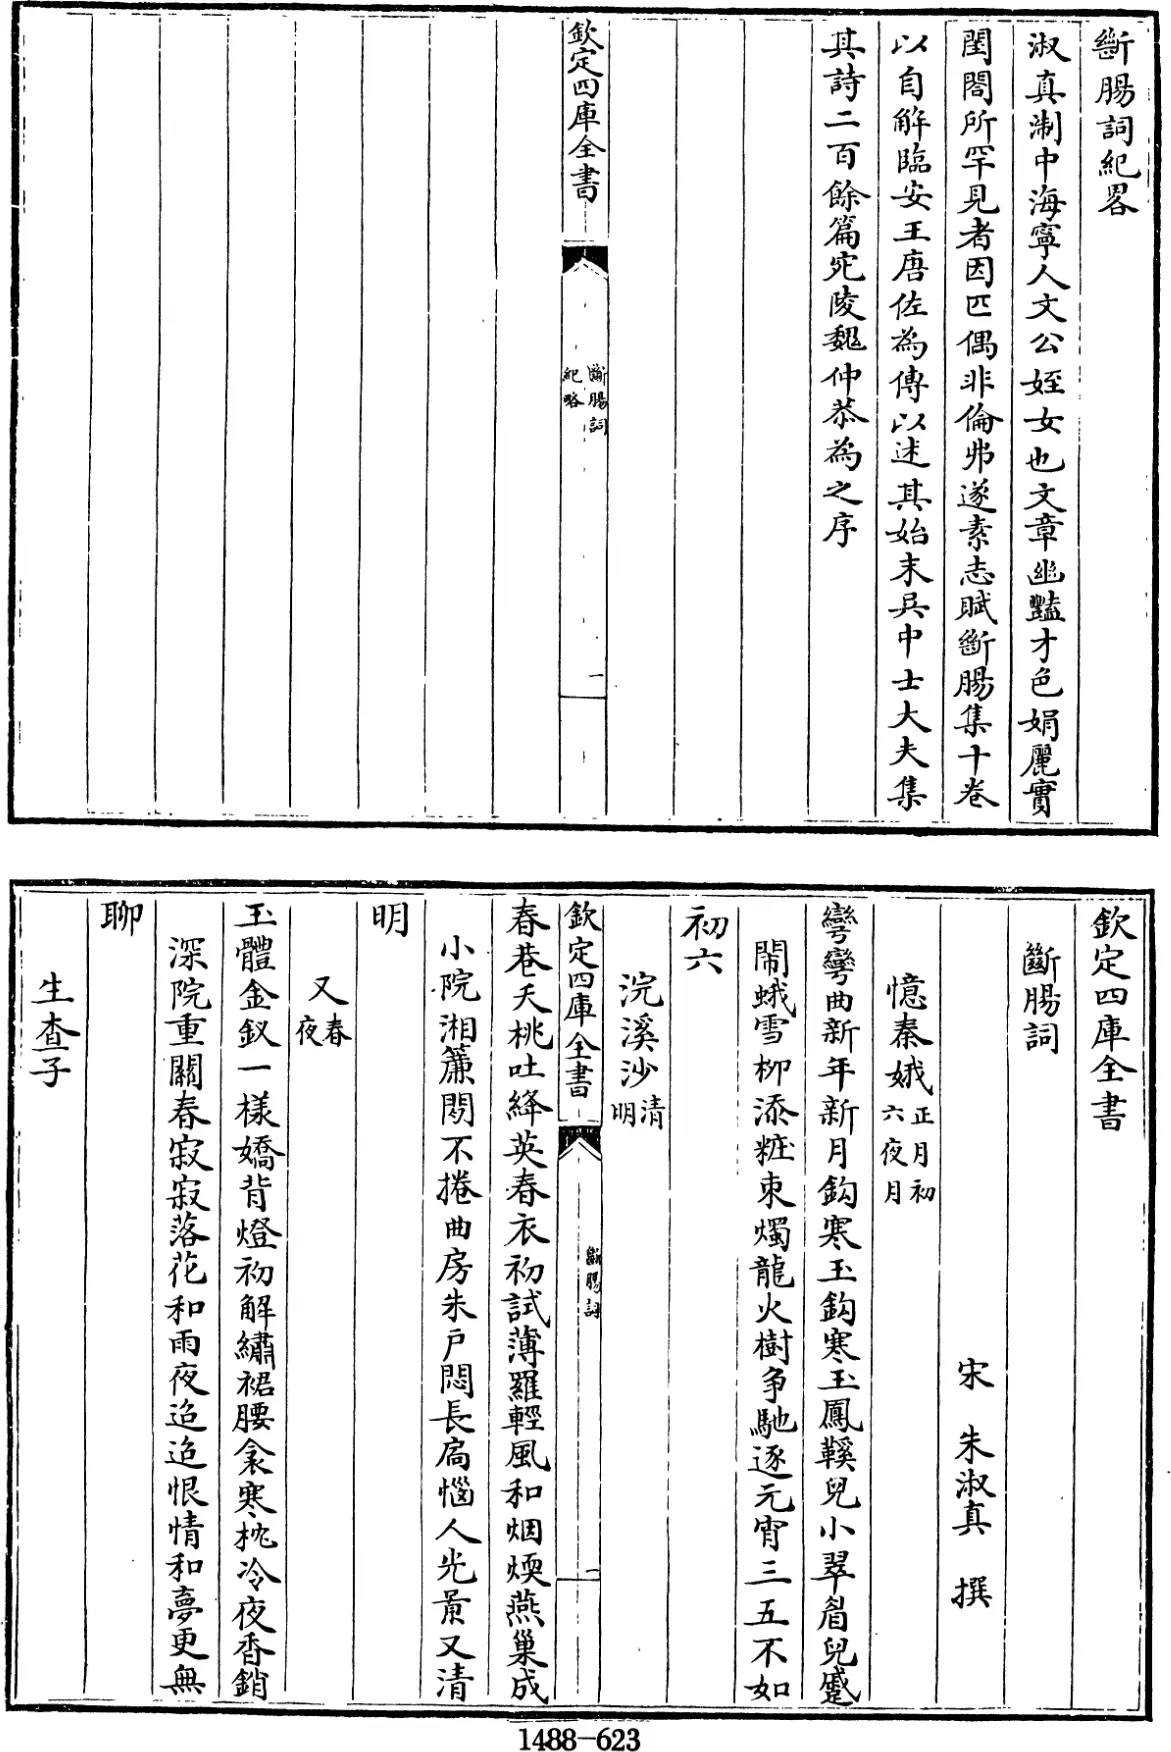 斷腸詞紀畧
淑真淛中海寧人文公姪女也文章幽豔才色娟麗實
閨閤所罕見者因匹偶非倫弗遂素志賦斷腸集十卷
以自解臨安王唐佐為傳以述其始末吳中士大夫集
其詩二百餘篇宛陵魏仲恭為之序
欽定四庫全書
斷腸詞
紀略
一
欽定四庫全書
斷腸詞
宋 朱淑真 撰
憶秦娥正月初六夜月
彎彎曲新年新月鈎寒玉鈎寒玉鳳鞵兒小翠眉兒蹙
鬧蛾雪柳添粧束燭龍火樹争馳逐元宵三五不如
初六
浣溪沙清明
欽定四庫全書
斷腸詞
一
春巷夭桃吐絳英春衣初試薄羅輕風和烟煖燕巢成
小院湘簾閒不捲曲房朱戶悶長扃惱人光景又清
明
又春夜
玉體金釵一樣嬌背燈初解繡裙腰衾寒枕冷夜香銷
深院重關春寂寂落花和雨夜迢迢恨情和夢更無
聊
生查子
1488-623